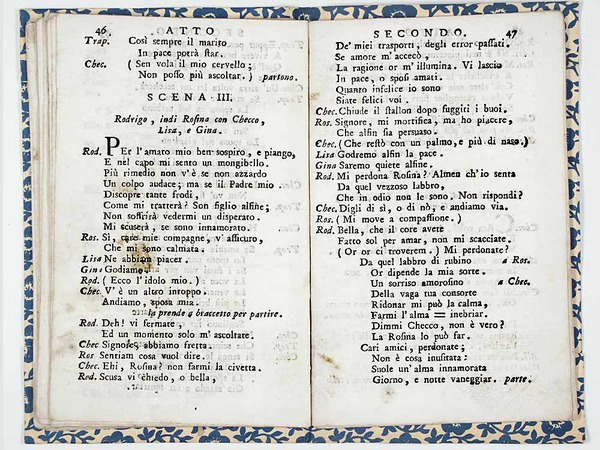 46 ATTO
Trap. Così sempre il marito
In pace potrà star.
Chec. (Sen vola il mio cervello;
Non posso più ascoltar.) partono.
SCENA III.
Rodrigo, indi Rosina con Checco,
Lisa, e Gina.
Rod. PEr l'amato mio ben sospiro, e piango,
E nel capo mi sento un mongibello.
Più rimedio non v'è se non azzardo
Un colpo audace; ma se il Padre mio
Discopre tante frodi,
Come mi tratterà? Son figlio alfine;
Non soffrirà vedermi un disperato.
Mi scuserà, se sono innamorato.
Ros. Sì, care mie compagne, v'assicuro,
Che mi sono calmata.
Lisa Ne abbiam piacer.
Gina Godiamo.
Rod. (Ecco l'idolo mio.)
Chec. V'è un altro intoppo.
Andiamo, sposa mia.
la prende a braccetto per partire.
Rod. Deh! vi fermate,
Ed un momento solo m'ascoltate.
Chec. Signore, abbiamo fretta.
Ros Sentiam cosa vuol dire.
Chec. Ehi, Rosina? non farmi la civetta.
Rod. Scusa vi chiedo, o bella,
SECONDO. 47
De' miei trasporti, degli error passati.
Se amore m'acceco,
La ragione or m'illumina. Vi lascio
In pace, o sposi amati.
Quanto infelice io sono
Siate felici voi.
Chec. Chiude il stallon dopo fuggiti i buoi.
Ros. Signore, mi mortifica, ma ho piacere,
Che alfin sia persuaso.
Chec. (Che restò con un palmo, e più di naso.)
Lisa Godremo alfin la pace.
Gina Saremo quiete alfine.
Rod. Mi perdona Rosina? Almen ch'io senta
Da quel vezzoso labbro,
Che in odio non le sono. Non rispondi?
Chec. Digli di sì, o di nò, e andiamo via.
Ros. (Mi move a compassione.)
Rod. Bella, che il core avete
Fatto sol per amar, non mi scacciate.
(Or or ci troverem.) Mi perdonate?
Da quel labbro di rubino a Ros.
Or dipende la mia sorte.
Un sorriso amorosino a Chec.
Della vaga tua consorte
Ridonar mi può la calma,
Farmi l'alma = inebriar.
Dimmi Checco, non è vero?
La Rosina lo può far.
Cari amici, perdonate;
Non è cosa inusitata:
Suole un'alma innamorata
Giorno, e notte vaneggiar. parte.